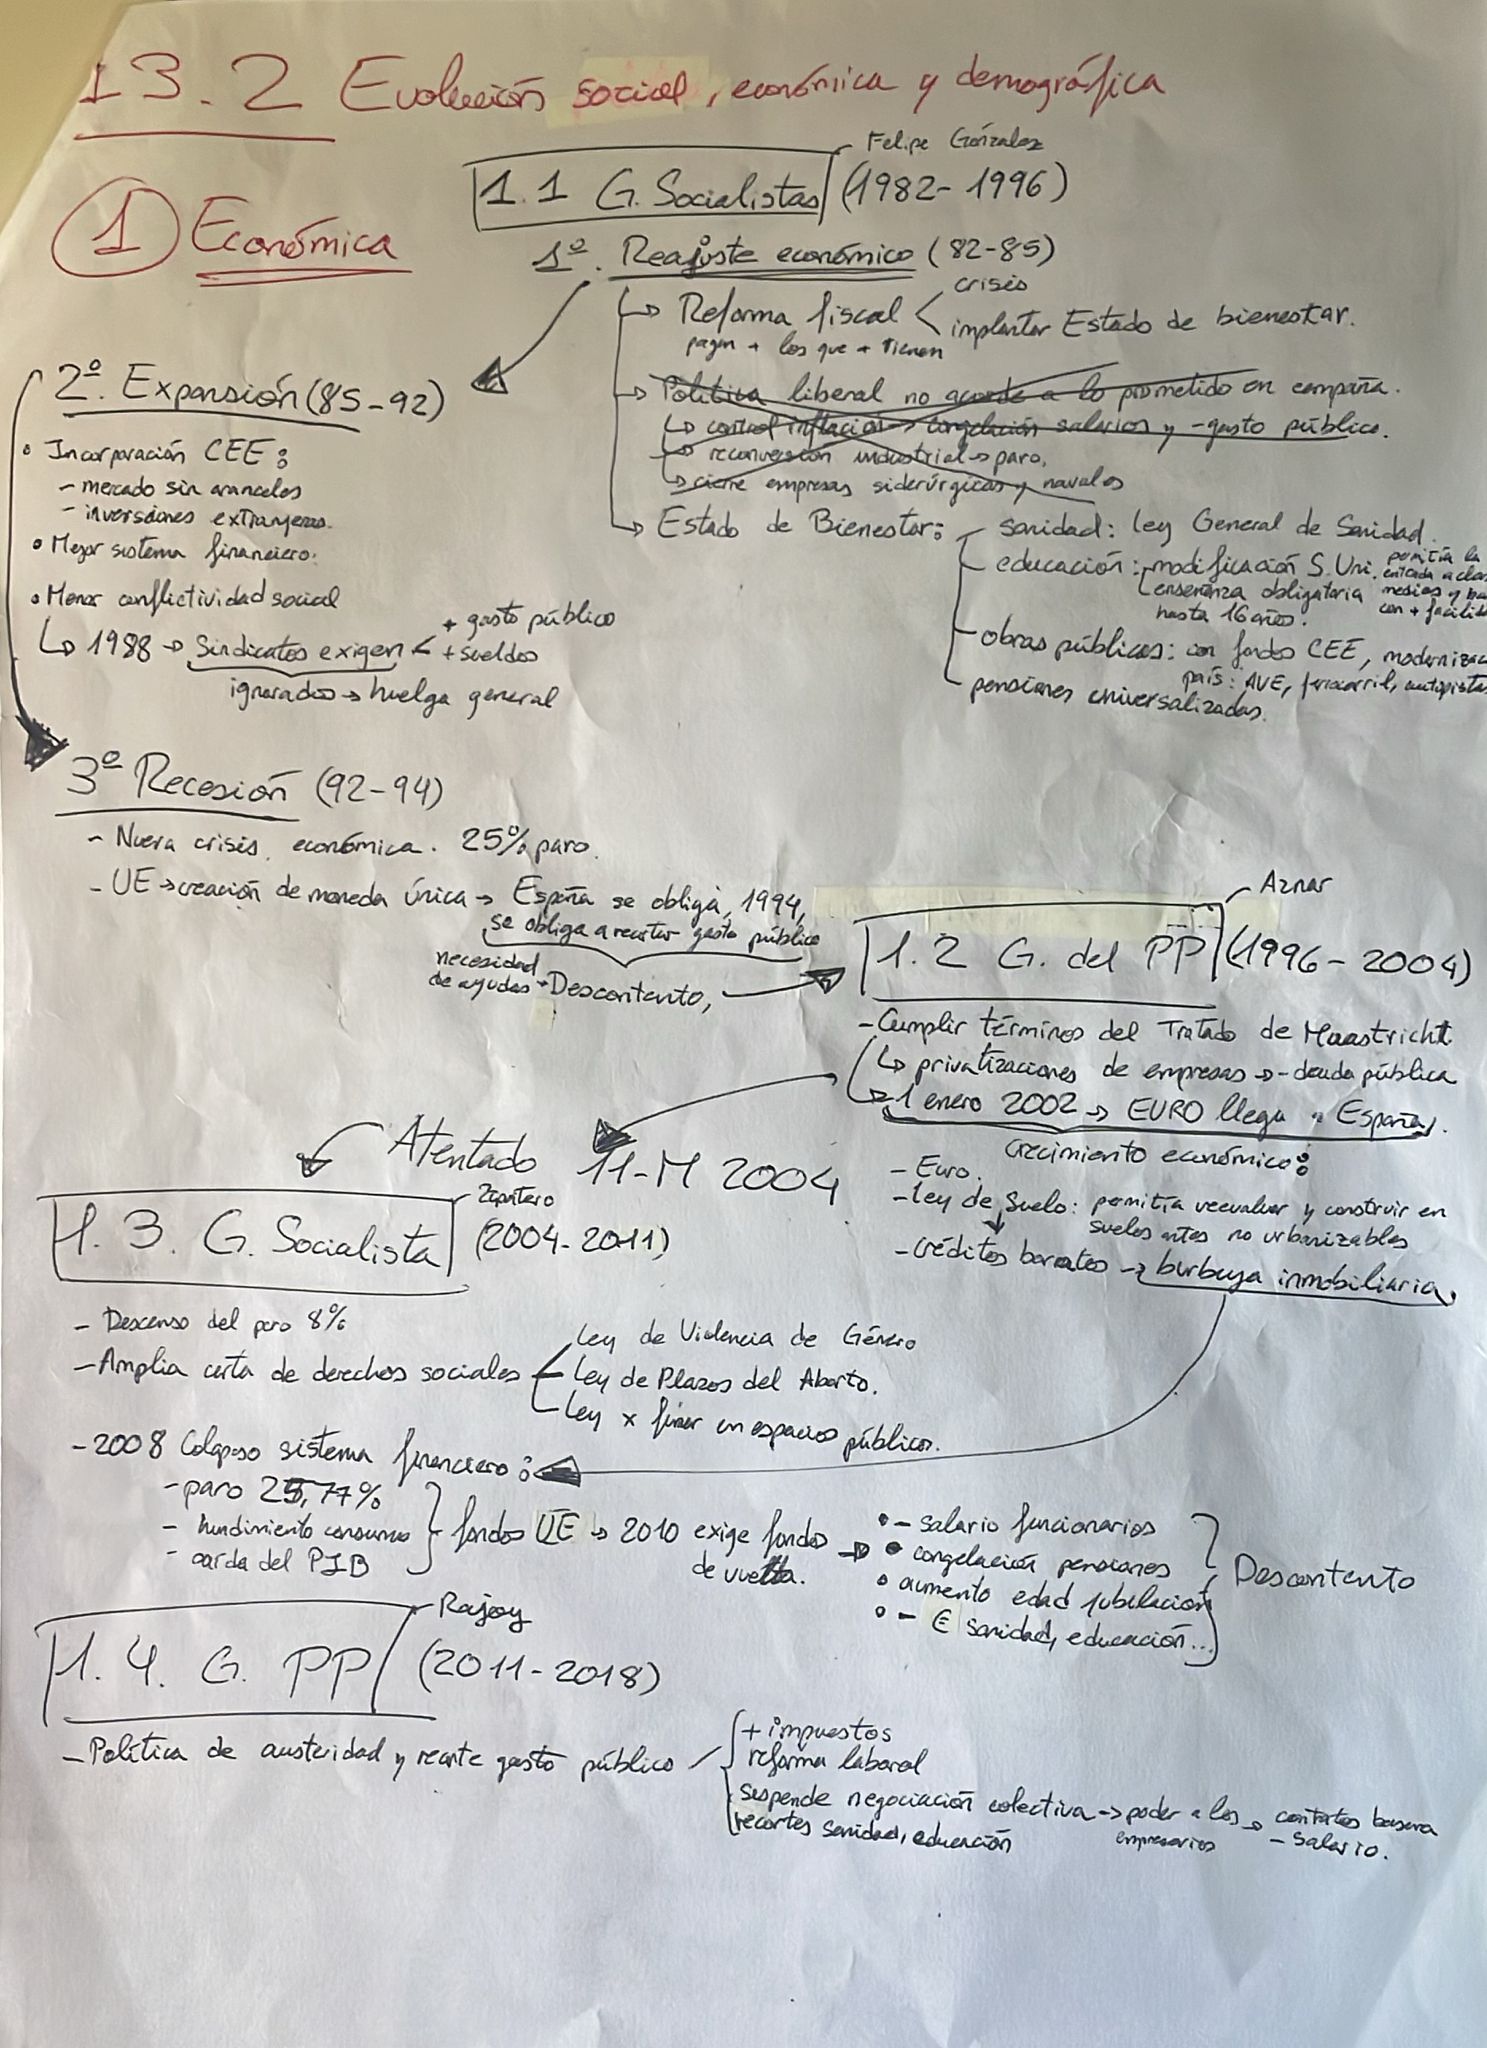 13.2 Evolución social, económica y demográfica
1 Económica
Felipe Gónzalez
1.1 G. Socialistas (1982-1996)
1º. Reajuste económico (82-85)
↳ Reforma fiscal < crisis
implantar Estado de bienestar.
pagan + los que + tienen
↳ Política liberal no acorde a lo prometido en campaña.
↳ control inflación → congelación salarios y - gasto público.
↳ reconversión industrial → paro,
↳ cierre empresas siderúrgicas y navales
↳ Estado de Bienestar:
- sanidad: Ley General de Sanidad.
- educación: modificación S. Uni. permitía la
entrada a clases
medias y
con + facilid
enseñanza obligatoria
hasta 16 años.
- obras públicas: con fondos CEE, moderniza
país: AVE, ferrocarril, autopistas
- pensiones universalizadas.
2º. Expansión (85-92)
• Incorporación CEE:
- mercado sin aranceles
- inversiones extranjeras.
• Mejor sistema financiero.
• Menor conflictividad social
↳ 1988 → Sindicatos exigen < + gasto público
+ sueldos
ignorados → huelga general
3º Recesión (92-94)
- Nueva crisis económica. 25% paro.
- UE → creación de moneda única → España se obliga, 1994,
se obliga a recortar gasto público
necesidad
de ayudas → Descontento,
Aznar
1.2 G. del PP (1996-2004)
- Cumplir términos del Tratado de Maastricht
↳ privatizaciones de empresas → - deuda pública
↳ 1 enero 2002 → EURO llega a España.
crecimiento económico:
- Euro.
- Ley de Suelo: permitía reevaluar y construir en
suelos antes no urbanizables
- Créditos baratos → burbuja inmobiliaria.
Atentado 11-M 2004
Zapatero
1.3. G. Socialista (2004-2011)
- Descenso del paro 8%
- Amplia carta de derechos sociales
Ley de Violencia de Género
Ley de Plazos del Aborto.
Ley x fumar en espacios públicos.
- 2008 Colapso sistema financiero:
- paro 25,77%
- hundimiento consumo
- caída del PIB
fondos UE → 2010 exige fondos
de vuelta.
• - salario funcionarios
• congelación pensiones
• aumento edad jubilación
• - € sanidad, educación...
Descontento
Rajoy
1.4. G. PP (2011-2018)
- Política de austeridad y recorte gasto público
+ impuestos
reforma laboral
suspende negociación colectiva → poder a los
empresarios
→ contratos basura
- salario.
recortes sanidad, educación